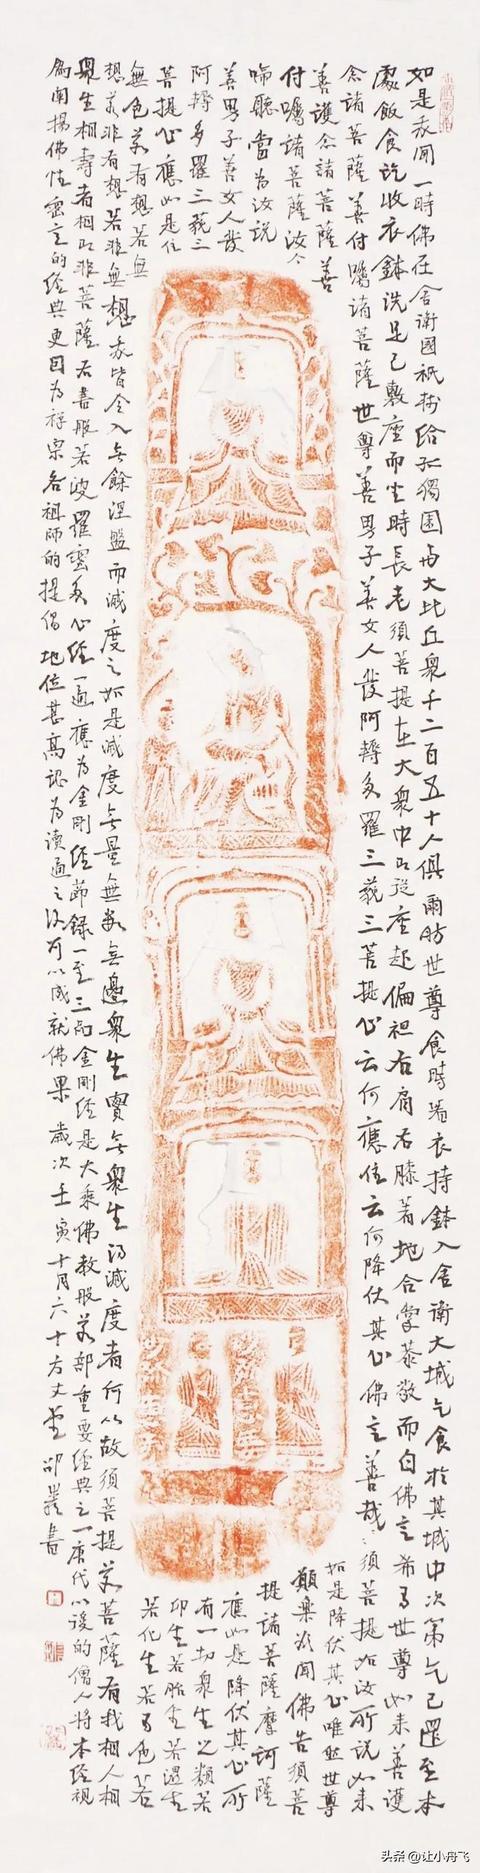 如是我聞一時佛在舍衛國祇樹給孤獨園與大比丘衆千二百五十人俱爾時世尊食時著衣持鉢入舍衛大城乞食於其城中次第乞已還至本
處飯食訖收衣鉢洗足已敷座而坐時長老須菩提在大衆中即從座起偏袒右肩右膝著地合掌恭敬而白佛言希有世尊如来善護
念諸菩薩善付囑諸菩薩世尊善男子善女人發阿耨多羅三藐三菩提心云何應住云何降伏其心佛言善哉〻須菩提如汝所說如来
善護念諸菩薩善
付囑諸菩薩汝今
諦聽當為汝說
善男子善女人發
阿耨多羅三藐三
菩提心應如是住
如是降伏其心唯然世尊
願樂欲聞佛告須菩
提諸菩薩摩訶薩
應如是降伏其心所
有一切衆生之類若
卵生若胎生若濕生
若化生若有色若
無色若有想若無
想若非有想若非無想我皆令入無餘涅盤而滅度之如是滅度無量無數無邊衆生實無衆生得滅度者何以故須菩提若菩薩有我相人相
衆生相壽者相即非菩薩右書般若波羅蜜多心經一過應為金剛經節錄一至三品金剛經是大乘佛教般若部重要經典之一唐代以後的僧人將本經視
為闡揚佛性的經典更因為禪宗各祖師的提倡地位甚高認為讀過之後可以成就佛果歲次壬寅十月六十方丈室邵巖書
头条 @让小舟飞